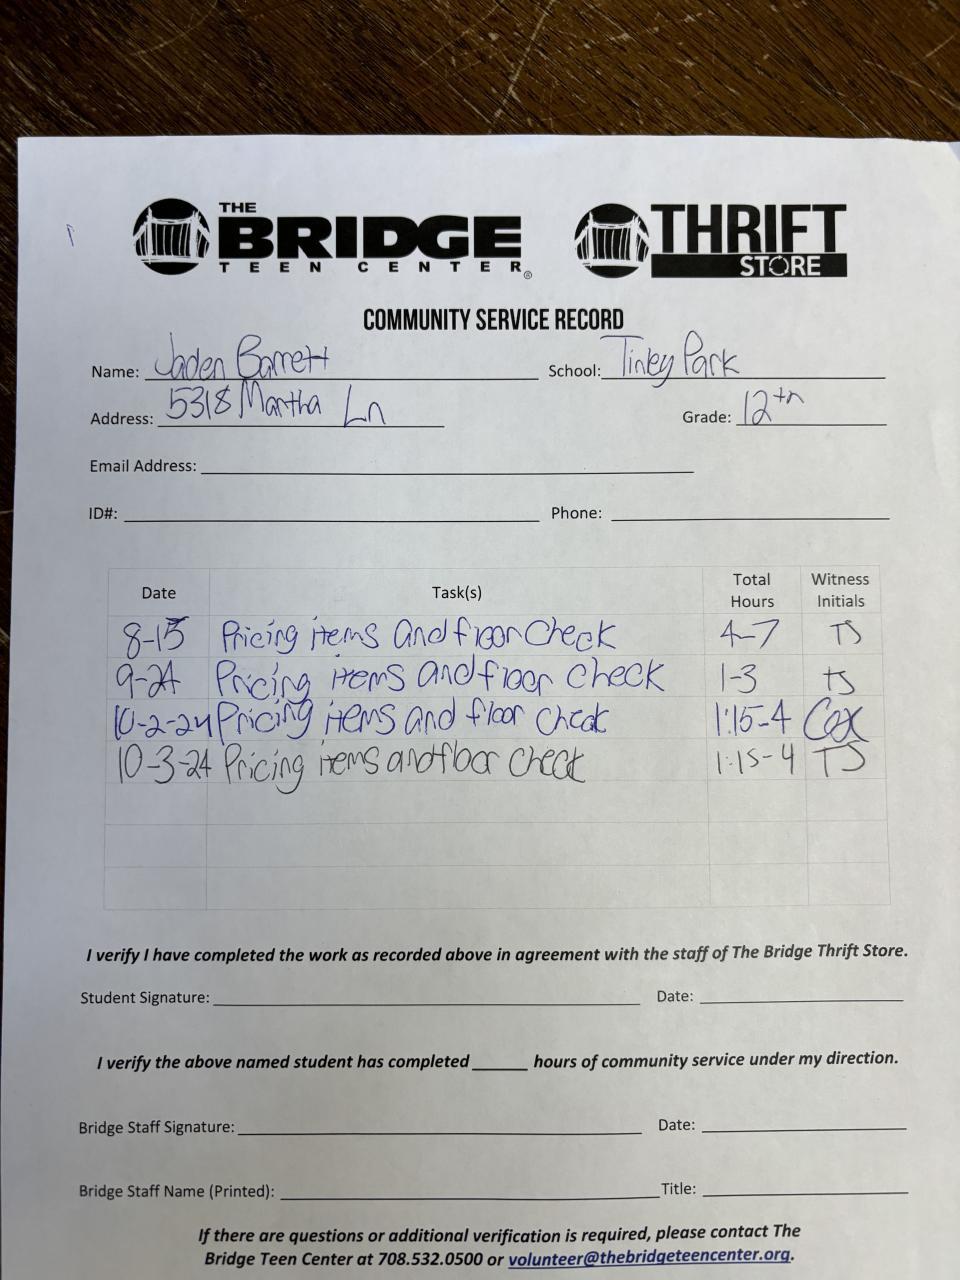 THE BRIDGE TEEN CENTER® THRIFT STORE
COMMUNITY SERVICE RECORD
Name: Jaden Barrett School: Tinley Park
Address: 5318 Martha Ln Grade: 12th
Email Address:
ID#: Phone:
Date Task(s) Total Hours Witness Initials
8-15 Pricing items and floor check 4-7 TS
9-24 Pricing items and floor check 1-3 TS
10-2-24 Pricing items and floor check 1:15-4 Cox
10-3-24 Pricing items and floor check 1:15-4 TS
I verify I have completed the work as recorded above in agreement with the staff of The Bridge Thrift Store.
Student Signature: Date:
I verify the above named student has completed hours of community service under my direction.
Bridge Staff Signature: Date:
Bridge Staff Name (Printed): Title:
If there are questions or additional verification is required, please contact The
Bridge Teen Center at 708.532.0500 or volunteer@thebridgeteencenter.org.